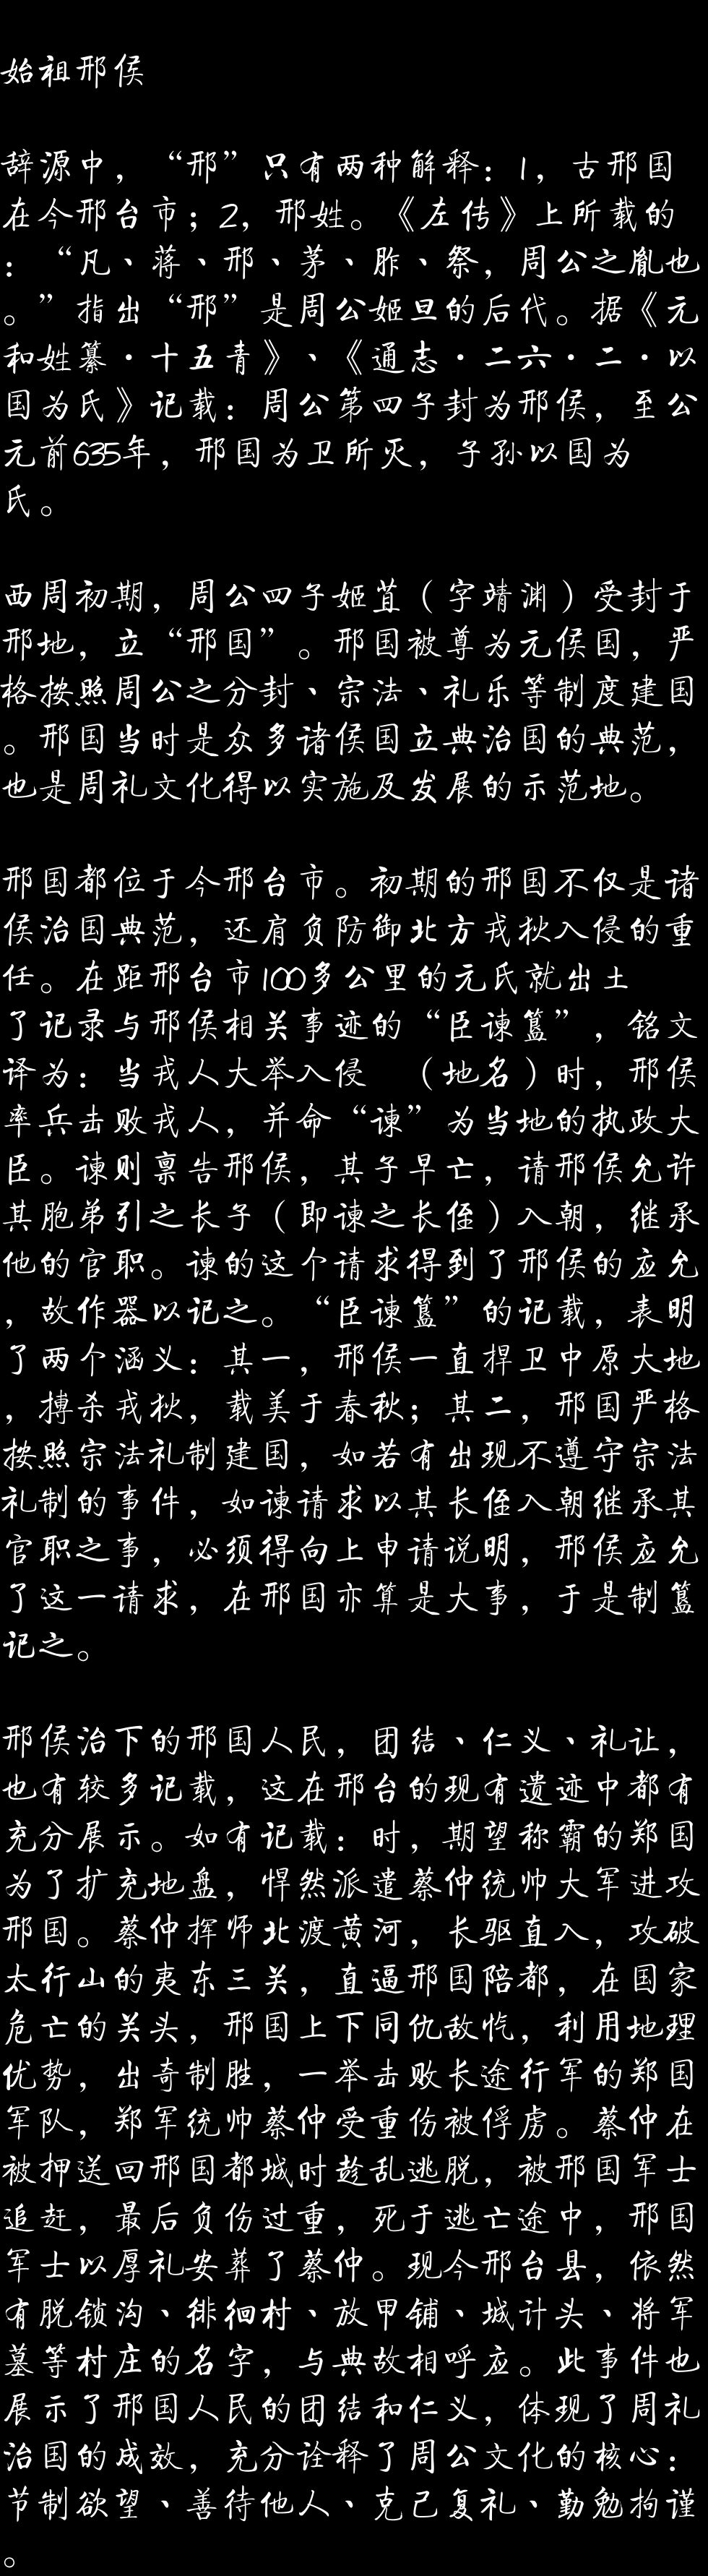 始祖邢侯
辞源中，“邢”只有两种解释：1，古邢国
在今邢台市；2，邢姓。《左传》上所载的
：“凡、蒋、邢、茅、胙、祭，周公之胤也
。”指出“邢”是周公姬旦的后代。据《元
和姓纂·十五青》、《通志·二六·二·以
国为氏》记载：周公第四子封为邢侯，至公
元前635年，邢国为卫所灭，子孙以国为
氏。
西周初期，周公四子姬苴（字靖渊）受封于
邢地，立“邢国”。邢国被尊为元侯国，严
格按照周公之分封、宗法、礼乐等制度建国
。邢国当时是众多诸侯国立典治国的典范，
也是周礼文化得以实施及发展的示范地。
邢国都位于今邢台市。初期的邢国不仅是诸
侯治国典范，还肩负防御北方戎狄入侵的重
任。在距邢台市100多公里的元氏就出土
了记录与邢侯相关事迹的“臣谏簋”，铭文
译为：当戎人大举入侵　（地名）时，邢侯
率兵击败戎人，并命“谏”为当地的执政大
臣。谏则禀告邢侯，其子早亡，请邢侯允许
其胞弟引之长子（即谏之长侄）入朝，继承
他的官职。谏的这个请求得到了邢侯的应允
，故作器以记之。“臣谏簋”的记载，表明
了两个涵义：其一，邢侯一直捍卫中原大地
，搏杀戎狄，载美于春秋；其二，邢国严格
按照宗法礼制建国，如若有出现不遵守宗法
礼制的事件，如谏请求以其长侄入朝继承其
官职之事，必须得向上申请说明，邢侯应允
了这一请求，在邢国亦算是大事，于是制簋
记之。
邢侯治下的邢国人民，团结、仁义、礼让，
也有较多记载，这在邢台的现有遗迹中都有
充分展示。如有记载：时，期望称霸的郑国
为了扩充地盘，悍然派遣蔡仲统帅大军进攻
邢国。蔡仲挥师北渡黄河，长驱直入，攻破
太行山的夷东三关，直逼邢国陪都，在国家
危亡的关头，邢国上下同仇敌忾，利用地理
优势，出奇制胜，一举击败长途行军的郑国
军队，郑军统帅蔡仲受重伤被俘虏。蔡仲在
被押送回邢国都城时趁乱逃脱，被邢国军士
追赶，最后负伤过重，死于逃亡途中，邢国
军士以厚礼安葬了蔡仲。现今邢台县，依然
有脱锁沟、徘徊村、放甲铺、城计头、将军
墓等村庄的名字，与典故相呼应。此事件也
展示了邢国人民的团结和仁义，体现了周礼
治国的成效，充分诠释了周公文化的核心：
节制欲望、善待他人、克己复礼、勤勉拘谨
。